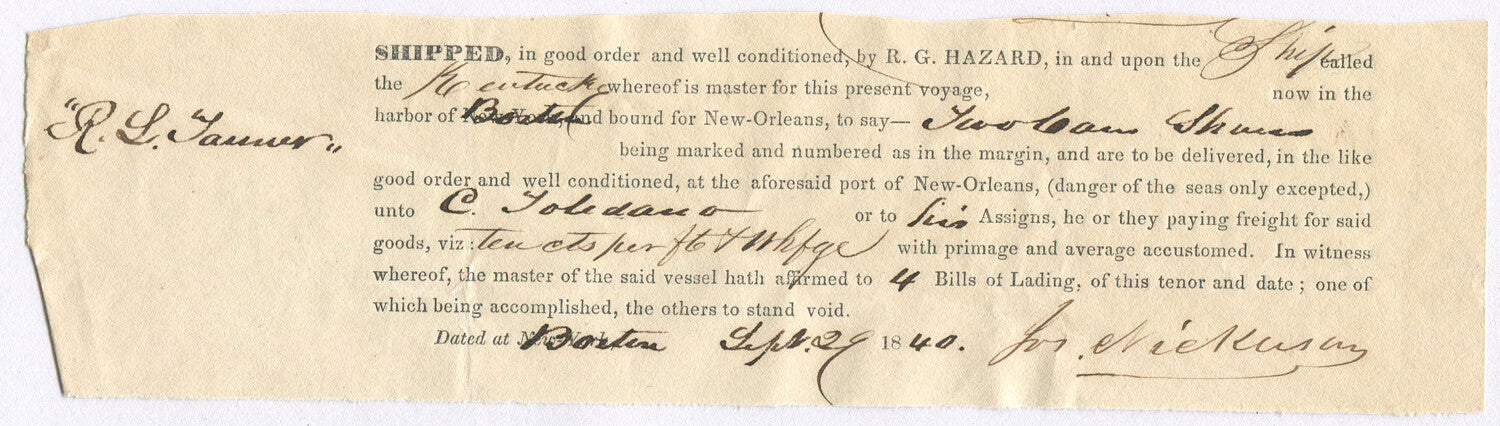 SHIPPED, in good order and well conditioned, by R. G. HAZARD, in and upon the Ship called
the Kentucky whereof is master for this present voyage, now in the
harbor of Boston and bound for New-Orleans, to say— Two Shoes
"R. L. Tanner"
being marked and numbered as in the margin, and are to be delivered, in the like
good order and well conditioned, at the aforesaid port of New-Orleans, (danger of the seas only excepted,)
unto C. Toledano or to his Assigns, he or they paying freight for said
goods, viz: ten cts per ft & Whfge with primage and average accustomed. In witness
whereof, the master of the said vessel hath affirmed to 4 Bills of Lading, of this tenor and date; one of
which being accomplished, the others to stand void.
Dated at Boston Sept. 29 1840. Jos. Nickerson